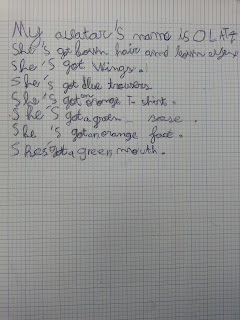 My avatar's name is OLAF
She's go bown hair and brown eyes
She's got wings.
She's got blue trousers
She's got an orange T-shirt.
She's got a green nose.
She's got an orange face.
She's got a green mouth.